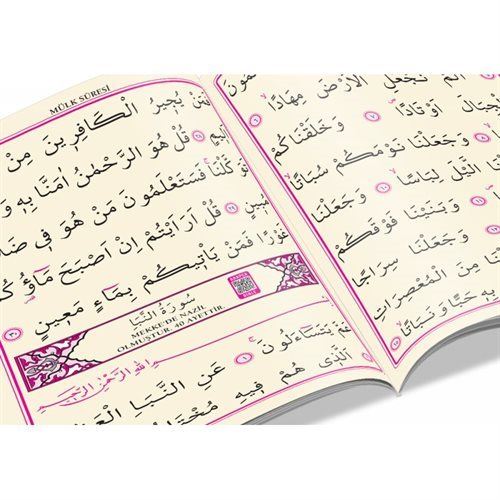 MÜLK SÛRESİ
فَمَنْ يُجٖيرُ الْكَافِرٖينَ مِنْ
٢٨ قُلْ هُوَ الرَّحْمٰنُ اٰمَنَّا بِهٖ وَ
تَوَكَّلْنَاۚ فَسَتَعْلَمُونَ مَنْ هُوَ فٖي ضَلَا
مُبٖينٍ ٢٩ قُلْ اَرَاَيْتُمْ اِنْ اَصْبَحَ مَٓاؤُ۬كُمْ
غَوْرًا فَمَنْ يَأْتٖيكُمْ بِمَٓاءٍ مَعٖينٍ ٣٠
سُورَةُ النَّبَأِ
MEKKE'DE NAZİL
OLMUŞTUR. 40 AYETTİR.
بِسْمِ اللّٰهِ الرَّحْمٰنِ الرَّحٖيمِ
عَمَّ يَتَسَٓاءَلُونَۚ ١ عَنِ النَّبَأِ الْعَظٖ
اَلَّذٖي هُمْ فٖيهِ مُخْتَلِ
نَجْعَلِ الْاَرْضَ مِهَادًاۙ ٦
وَالْجِبَالَ اَوْتَادًاۙ ٧ وَخَلَقْنَاكُمْ
وَجَعَلْنَا نَوْمَكُمْ سُبَاتًاۙ ٩
وَجَعَلْنَا الَّيْلَ لِبَاسًاۙ ١٠
وَبَنَيْنَا فَوْقَكُمْ
وَجَعَلْنَا سِرَاجًا
مِنَ الْمُعْصِرَاتِ
بِهٖ حَبًّا وَنَبَاتًاۙ ١٥